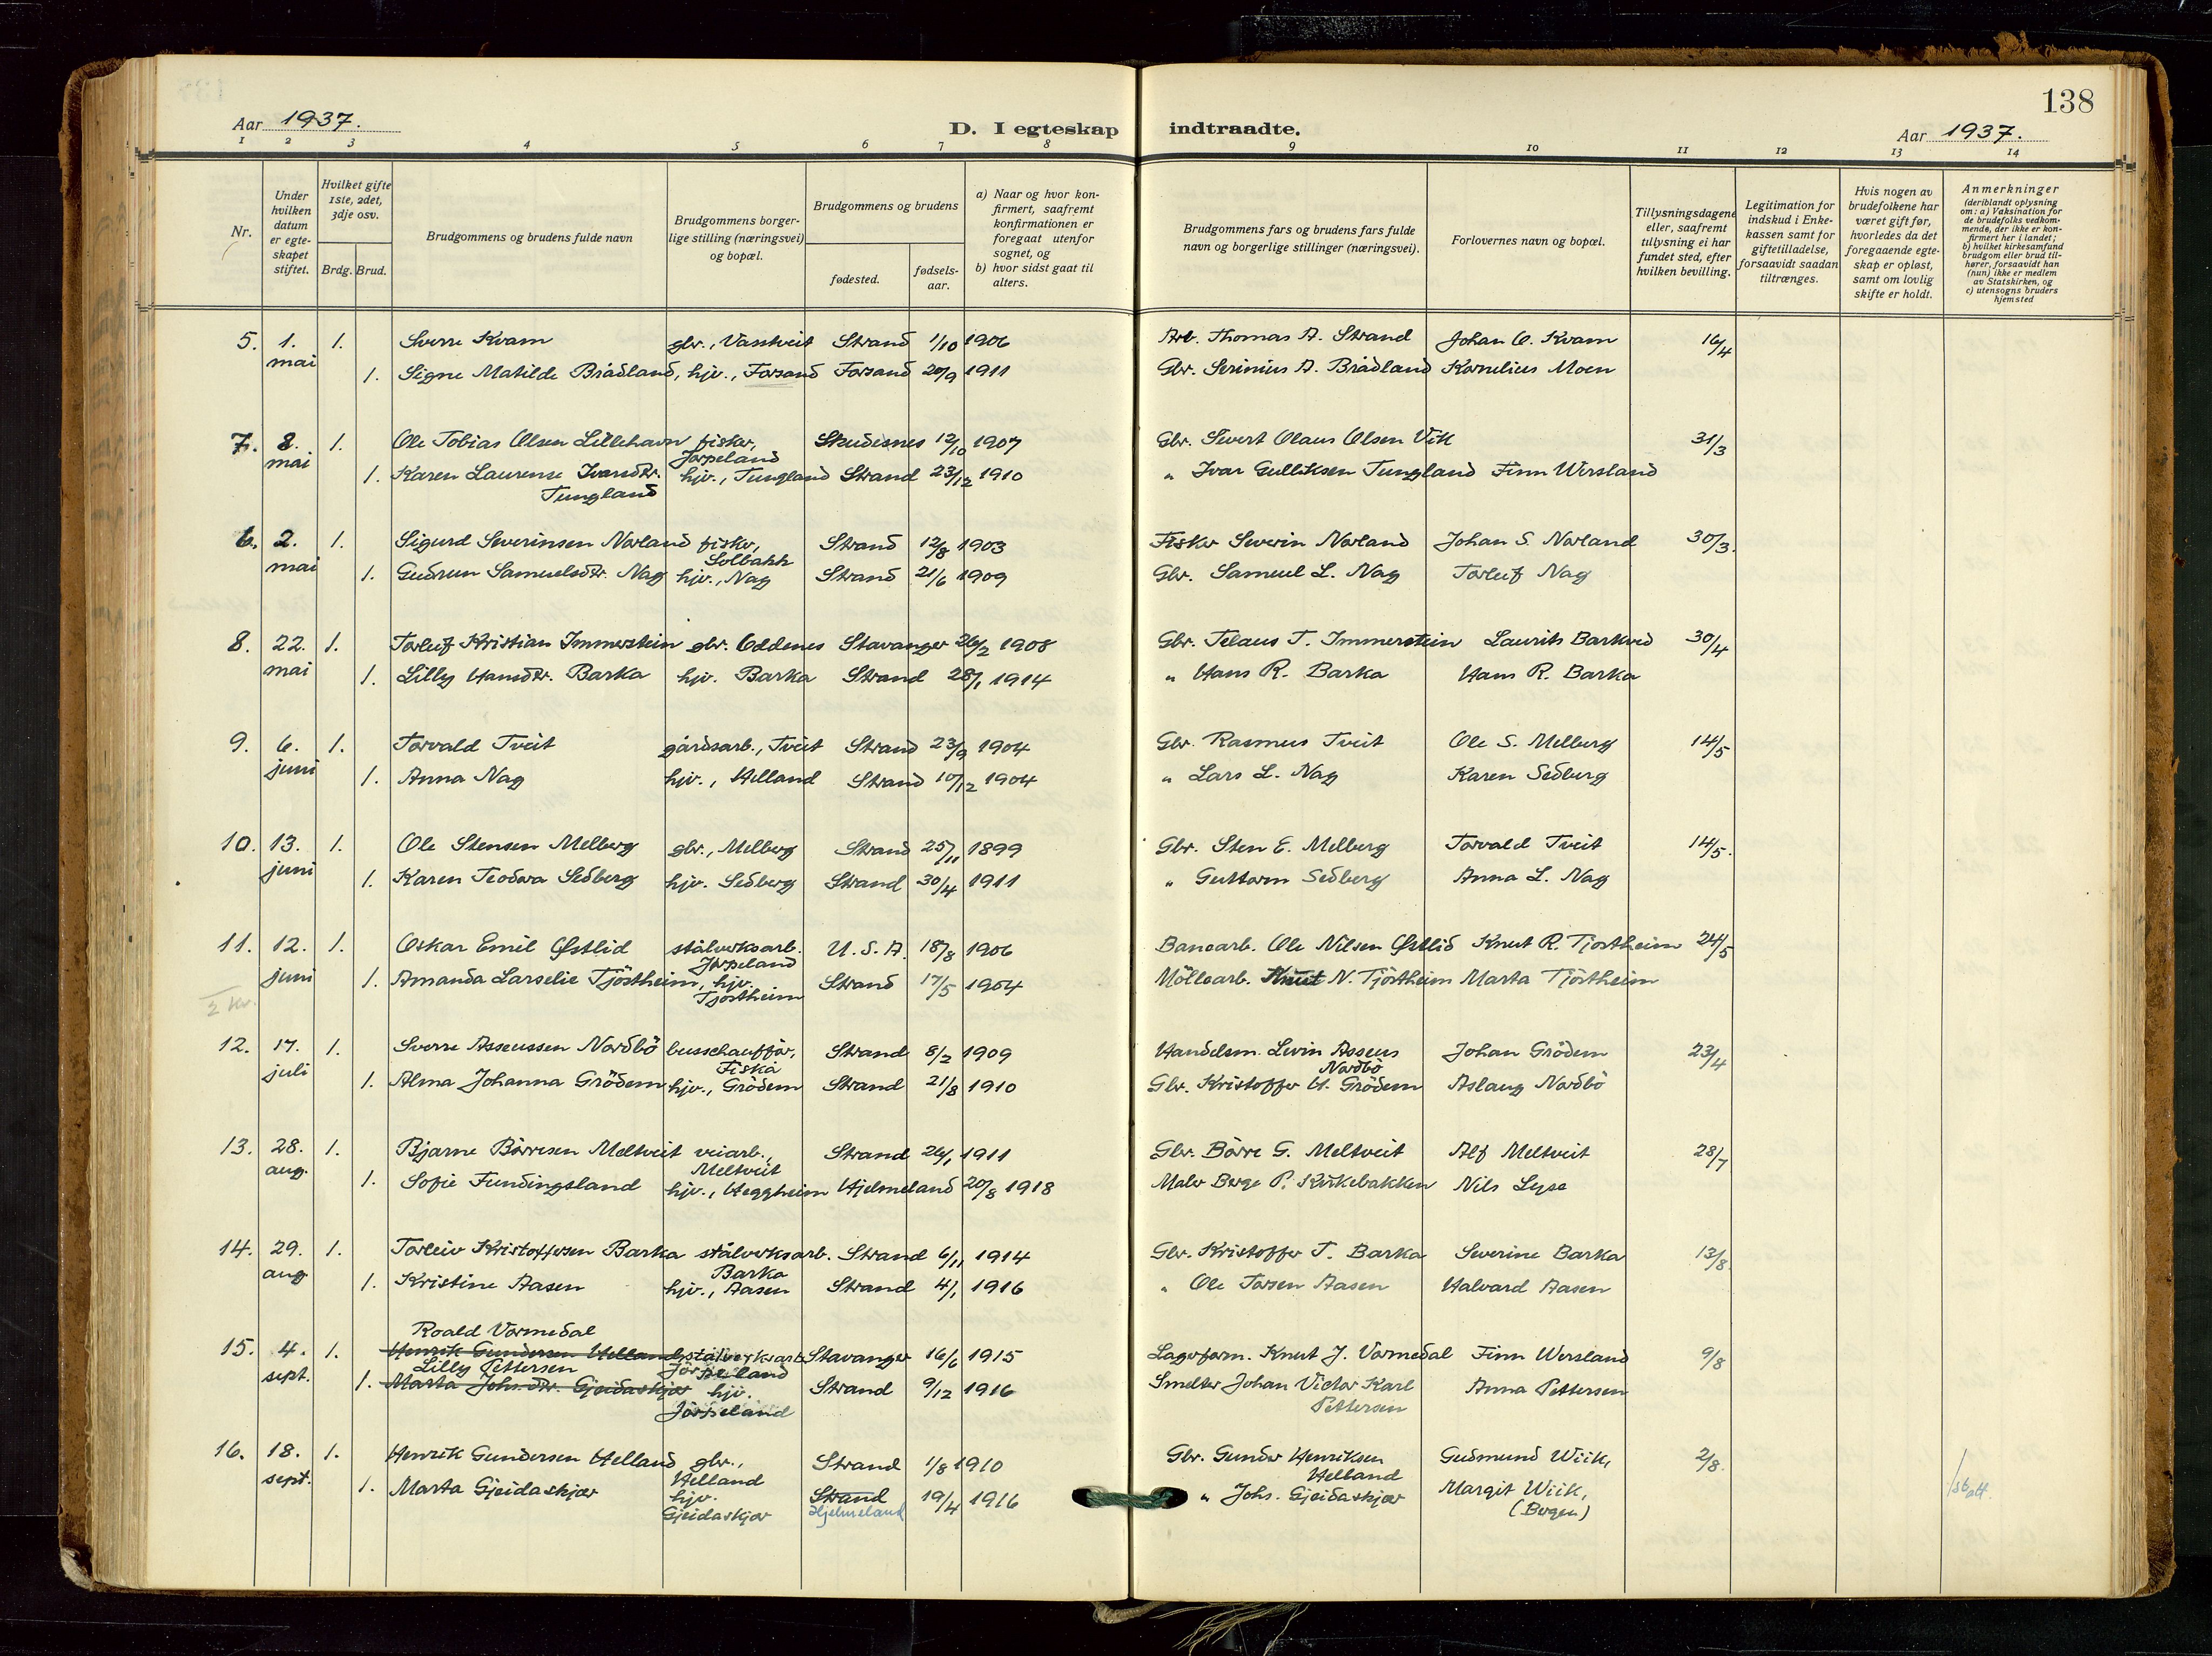 138
Aar 1937. D. I egteskap indtraadte. Aar 1937.
1 2 3 4 5 6 7 8 9 10 11 12 13 14
Nr.
Under hvilken datum er egteskapet stiftet.
Hvilket gifte 1ste, 2det, 3dje osv.
Brdg. Brud.
Brudgommens og brudens fulde navn
Brudgommens borgerlige stilling (næringsvei) og bopæl.
Brudgommens og brudens
fødested.
fødselsaar.
a) Naar og hvor konfirmert, saafremt konfirmationen er foregaat utenfor sognet, og
b) hvor sidst gaat til alters.
Brudgommens fars og brudens fars fulde navn og borgerlige stillinger (næringsvei).
Forlovernes navn og bopæl.
Tillysningsdagene eller, saafremt tillysning ei har fundet sted, efter hvilken bevilling.
Legitimation for indskud i Enkekassen samt for giftetilladelse, forsaavidt saadan tiltrænges.
Hvis nogen av brudefolkene har været gift før, hvorledes da det foregaaende egteskap er opløst, samt om lovlig skifte er holdt.
Anmerkninger (deriblandt oplysning om: a) Vaksination for de brudefolks vedkommende, der ikke er konfirmert her i landet; b) hvilket kirkesamfund brudgom eller brud tilhører, forsaavidt han (hun) ikke er medlem av Statskirken, og c) utensogns bruders hjemsted
5. 1. mai 1. Sverre Kvam gbr., Vasstveit Strand 1/10 1906 Arb. Thomas A. Strand Johan O. Kvam 16/4
1. Signe Matilde Brådland, hjv., Forsand Forsand 20/9 1911 Gbr. Serinius A. Brådland Kornelius Moen
7. 8. mai 1. Ole Tobias Olsen Lillehavn fisker, Jørpeland Skudesnes 12/10 1907 Gbr. Sivert Olaus Olsen Vik 31/3
1. Karen Laurense Ivarsdtr. Tungland hjv., Tungland Strand 23/12 1910 " Ivar Gulliksen Tungland Finn Wersland
6. 2. mai 1. Sigurd Severinsen Norland fisker, Solbakk Strand 12/8 1903 Fisker Severin Norland Johan S. Norland 30/3.
1. Gudrun Samuelsdtr. Nag hjv., Nag Strand 21/6 1909 Gbr. Samuel L. Nag Torleif Nag
8. 22. mai 1. Torleif Kristian Immerstein gbr. Oddenes Stavanger 26/2 1908 Gbr. Telaus T. Immerstein Laurits Barkved 30/4
1. Lilly Hansdtr. Barka hjv. Barka Strand 28/1 1914 " Hans R. Barka Hans R. Barka
9. 6. juni 1. Torvald Tveit gårdsarb., Tveit Strand 23/9 1904 Gbr. Rasmus Tveit Ole S. Melberg 14/5
1. Anna Nag hjv., Helland Strand 10/12 1904 " Lars L. Nag Karen Sedberg
10. 13. juni 1. Ole Stensen Melberg gbr., Melberg Strand 25/11 1899 Gbr. Sten E. Melberg Torvald Tveit 14/5.
1. Karen Teodora Sedberg hjv. Sedberg Strand 30/4 1911 " Guttorm Sedberg Anna L. Nag
11. 12. juni 1. Oskar Emil Østlid stålverksarb. Jørpeland U.S.A. 18/8 1906 Banearb. Ole Nilsen Østlid Knut R. Tjöstheim 24/5
1. Amanda Larselie Tjöstheim, hjv. Tjöstheim Strand 17/5 1904 Mölloarb. Knut N. Tjöstheim Marta Tjöstheim
2 kv.
12. 17. juli 1. Sverre Asseussen Nordbö busschaufför, Fiskå Strand 8/2 1909 Handelsm. Levin Asseus Nordbö Johan Grödem 23/4
1. Alma Johanna Grödem hjv., Grödem Strand 21/8 1910 Gbr. Kristoffer H. Grödem Aslaug Nordbö
13. 28. aug. 1. Bjarne Börresen Meltveit veiarb., Meltveit Strand 26/1 1911 Gbr. Börre G. Meltveit Alf Meltveit 28/7
1. Sofie Fundingsland hjv., Heggheim Hjelmeland 20/8 1918 Maler Berge P. Kirkebakken Nils Lyse
14. 29. aug 1. Torleiv Kristoffersen Barka stålverksarb. Barka Strand 6/11 1914 Gbr. Kristoffer T. Barka Severine Barka 13/8.
1. Kristine Aasen hjv., Aasen Strand 4/1 1916 " Ole Torsen Aasen Halvard Aasen
Roald Vormedal
15. 4. sept. 1. Henrik Gundersen Helland, stålverksarb. Jörpeland Stavanger 16/6 1915 Lagerform. Knut J. Vormedal Finn Wersland 9/8
Lilly Pettersen
1. Marta Johs.dtr. Gjeidaskjær hjv. Jörpeland Strand 9/12 1916 Smelter Johan Victor Karl Pettersen Anna Pettersen
16. 18. sept. 1. Henrik Gundersen Helland gbr., Helland Strand 1/8 1910 Gbr. Gunder Henriksen Helland Gudmund Wiik, 2/8.
1. Marta Gjeidaskjær hjv. Gjeidaskjær Strand Hjelmeland 19/4 1916 " Johs. Gjeidaskjær Margit Wiik, (Bergen)